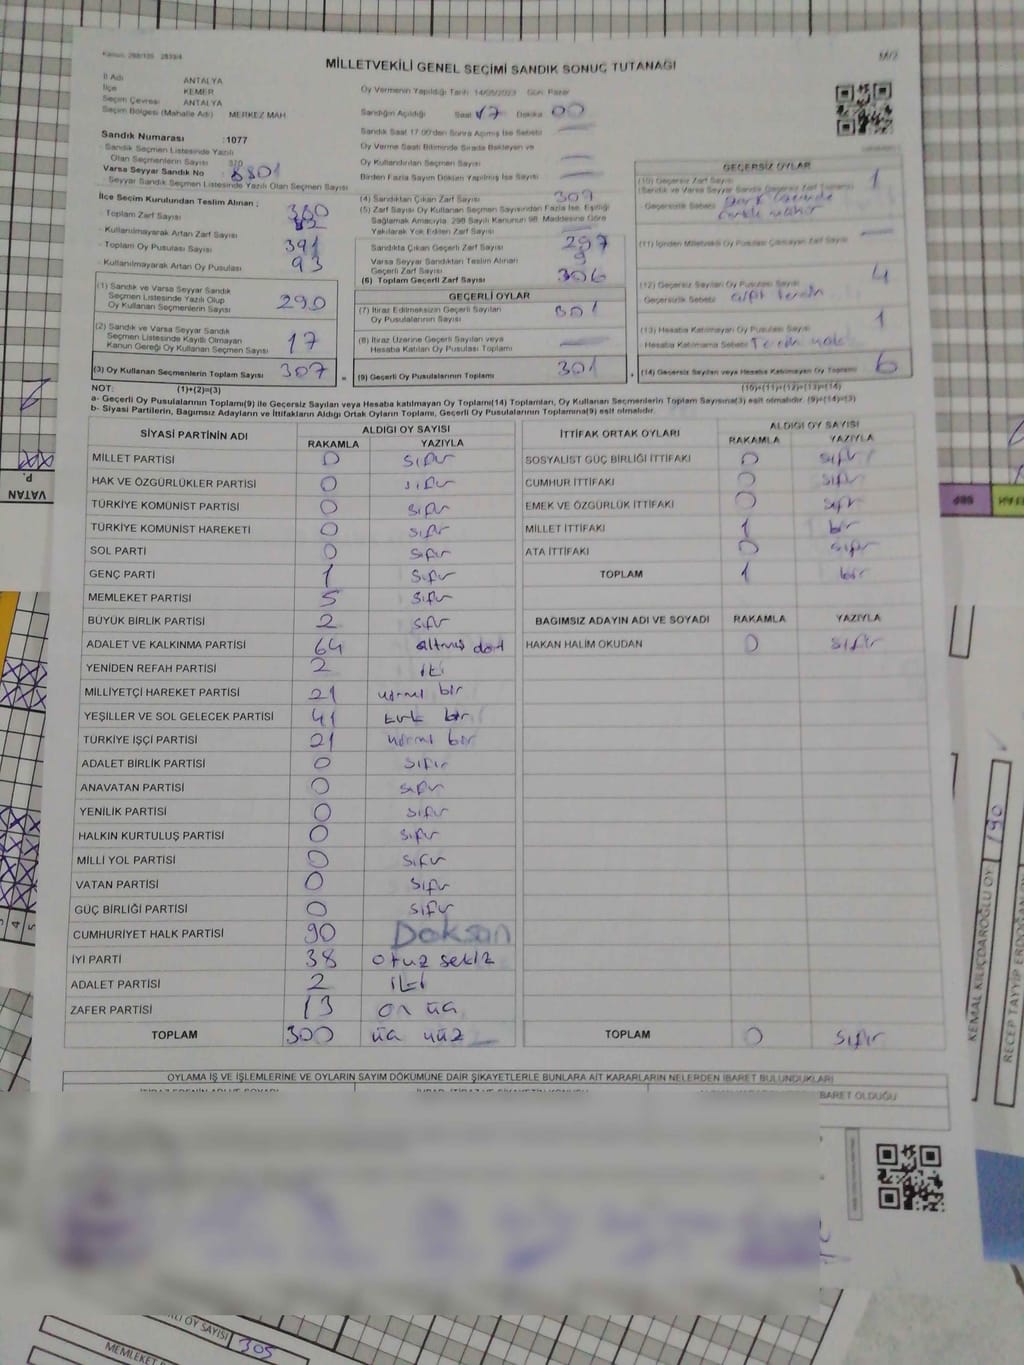 MİLLETVEKİLİ GENEL SEÇİMİ SANDIK SONUÇ TUTANAĞI
İl Adı ANTALYA
İlçe KEMER
Seçim Çevresi ANTALYA
Seçim Bölgesi (Mahalle Adı) MERKEZ MAH
Sandık Numarası :1077
- Sandık Seçmen Listesinde Yazılı
Olan Seçmenlerin Sayısı 370
Varsa Seyyar Sandık No 8801
- Seyyar Sandık Seçmen Listesinde Yazılı Olan Seçmen Sayısı
İlçe Seçim Kurulundan Teslim Alınan ;
- Toplam Zarf Sayısı
- Kullanılmayarak Artan Zarf Sayısı
- Toplam Oy Pusulası Sayısı 391
- Kullanılmayarak Artan Oy Pusulası 93
(1) Sandık ve Varsa Seyyar Sandık
Seçmen Listesinde Yazılı Olup
Oy Kullanan Seçmenlerin Sayısı 290
(2) Sandık ve Varsa Seyyar Sandık
Seçmen Listesinde Kayıtlı Olmayan
Kanun Gereği Oy Kullanan Seçmen Sayısı 17
(3) Oy Kullanan Seçmenlerin Toplam Sayısı 307
Oy Vermenin Yapıldığı Tarih 14/05/2023 Gün: Pazar
Sandığın Açıldığı Saat 17 Dakika 00
Sandık Saat 17:00'den Sonra Açılmış İse Sebebi
Oy Verme Saati Bitiminde Sırada Bekleyen ve
Oy Kullandırılan Seçmen Sayısı
Birden Fazla Sayım Döküm Yapılmış İse Sayısı
(4) Sandıktan Çıkan Zarf Sayısı 307
(5) Zarf Sayısı Oy Kullanan Seçmen Sayısından Fazla İse, Eşitliği
Sağlamak Amacıyla, 298 Sayılı Kanunun 98. Maddesine Göre
Yakılarak Yok Edilen Zarf Sayısı
Sandıkta Çıkan Geçerli Zarf Sayısı 297
Varsa Seyyar Sandıktan Teslim Alınan
Geçerli Zarf Sayısı 9
(6) Toplam Geçerli Zarf Sayısı 306
GEÇERLİ OYLAR
(7) İtiraz Edilmeksizin Geçerli Sayılan
Oy Pusulalarının Sayısı 301
(8) İtiraz Üzerine Geçerli Sayılan veya
Hesaba Katılan Oy Pusulası Toplamı
= (9) Geçerli Oy Pusulalarının Toplamı 301
GEÇERSİZ OYLAR
(10) Geçersiz Zarf Sayısı 1
- Geçersizlik Sebebi
(11) İçinden Milletvekili Oy Pusulası Çıkmayan Zarf Sayısı
(12) Geçersiz Sayılan Oy Pusulası Sayısı 4
Geçersizlik Sebebi
(13) Hesaba Katılmayan Oy Pusulası Sayısı 1
- Hesaba Katılmama Sebebi
+ (14) Geçersiz Sayılan veya Hesaba Katılmayan Oy Toplamı 6
NOT: (1)+(2)=(3) (10)+(11)+(12)+(13)=(14)
a- Geçerli Oy Pusulalarının Toplamı(9) ile Geçersiz Sayılan veya Hesaba katılmayan Oy Toplamı(14) Toplamları, Oy Kullanan Seçmenlerin Toplam Sayısına(3) eşit olmalıdır. (9)+(14)=(3)
b- Siyasi Partilerin, Bağımsız Adayların ve İttifakların Aldığı Ortak Oyların Toplamı, Geçerli Oy Pusulalarının Toplamına(9) eşit olmalıdır.
SİYASİ PARTİNİN ADI ALDIĞI OY SAYISI
RAKAMLA YAZIYLA
MİLLET PARTİSİ 0 sıfır
HAK VE ÖZGÜRLÜKLER PARTİSİ 0 sıfır
TÜRKİYE KOMÜNİST PARTİSİ 0 sıfır
TÜRKİYE KOMÜNİST HAREKETİ 0 sıfır
SOL PARTİ 0 sıfır
GENÇ PARTİ 1 sıfır
MEMLEKET PARTİSİ 5 sıfır
BÜYÜK BİRLİK PARTİSİ 2 sıfır
ADALET VE KALKINMA PARTİSİ 64 altmış dört
YENİDEN REFAH PARTİSİ 2 iki
MİLLİYETÇİ HAREKET PARTİSİ 21 yirmi bir
YEŞİLLER VE SOL GELECEK PARTİSİ 41 kırk bir
TÜRKİYE İŞÇİ PARTİSİ 21 yirmi bir
ADALET BİRLİK PARTİSİ 0 sıfır
ANAVATAN PARTİSİ 0 sıfır
YENİLİK PARTİSİ 0 sıfır
HALKIN KURTULUŞ PARTİSİ 0 sıfır
MİLLİ YOL PARTİSİ 0 sıfır
VATAN PARTİSİ 0 sıfır
GÜÇ BİRLİĞİ PARTİSİ 0 sıfır
CUMHURİYET HALK PARTİSİ 90 Doksan
İYİ PARTİ 38 otuz sekiz
ADALET PARTİSİ 2 iki
ZAFER PARTİSİ 13 on üç
TOPLAM 300 üç yüz
İTTİFAK ORTAK OYLARI ALDIĞI OY SAYISI
RAKAMLA YAZIYLA
SOSYALİST GÜÇ BİRLİĞİ İTTİFAKI 0 sıfır
CUMHUR İTTİFAKI 0 sıfır
EMEK VE ÖZGÜRLÜK İTTİFAKI 0 sıfır
MİLLET İTTİFAKI 1 bir
ATA İTTİFAKI 0 sıfır
TOPLAM 1 bir
BAĞIMSIZ ADAYIN ADI VE SOYADI RAKAMLA YAZIYLA
HAKAN HALİM OKUDAN 0 sıfır
TOPLAM 0 sıfır
OYLAMA İŞ VE İŞLEMLERİNE VE OYLARIN SAYIM DÖKÜMÜNE DAİR ŞİKAYETLERLE BUNLARA AİT KARARLARIN NELERDEN İBARET BULUNDUKLARI
BARET OLDUĞU
VATAN
P.
BBP
KEMAL KILIÇDAROĞLU OY 190
RECEP TAYYİP ERDOĞAN
OY SAYISI 305
MEMLEKET